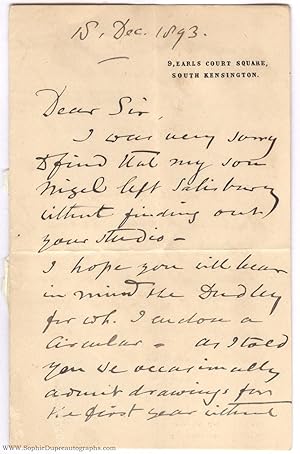 15, Dec. 1893.
9, EARLS COURT SQUARE,
SOUTH KENSINGTON.
Dear Sir,
I was very sorry
to find that my son
Nigel left Salisbury
without finding out
your studio -
I hope you will bear
in mind the Dudley
for wh. I enclose a
Circular - as I told
you we occasionally
admit drawings for
the first year without
www.SophieDupreautographs.com